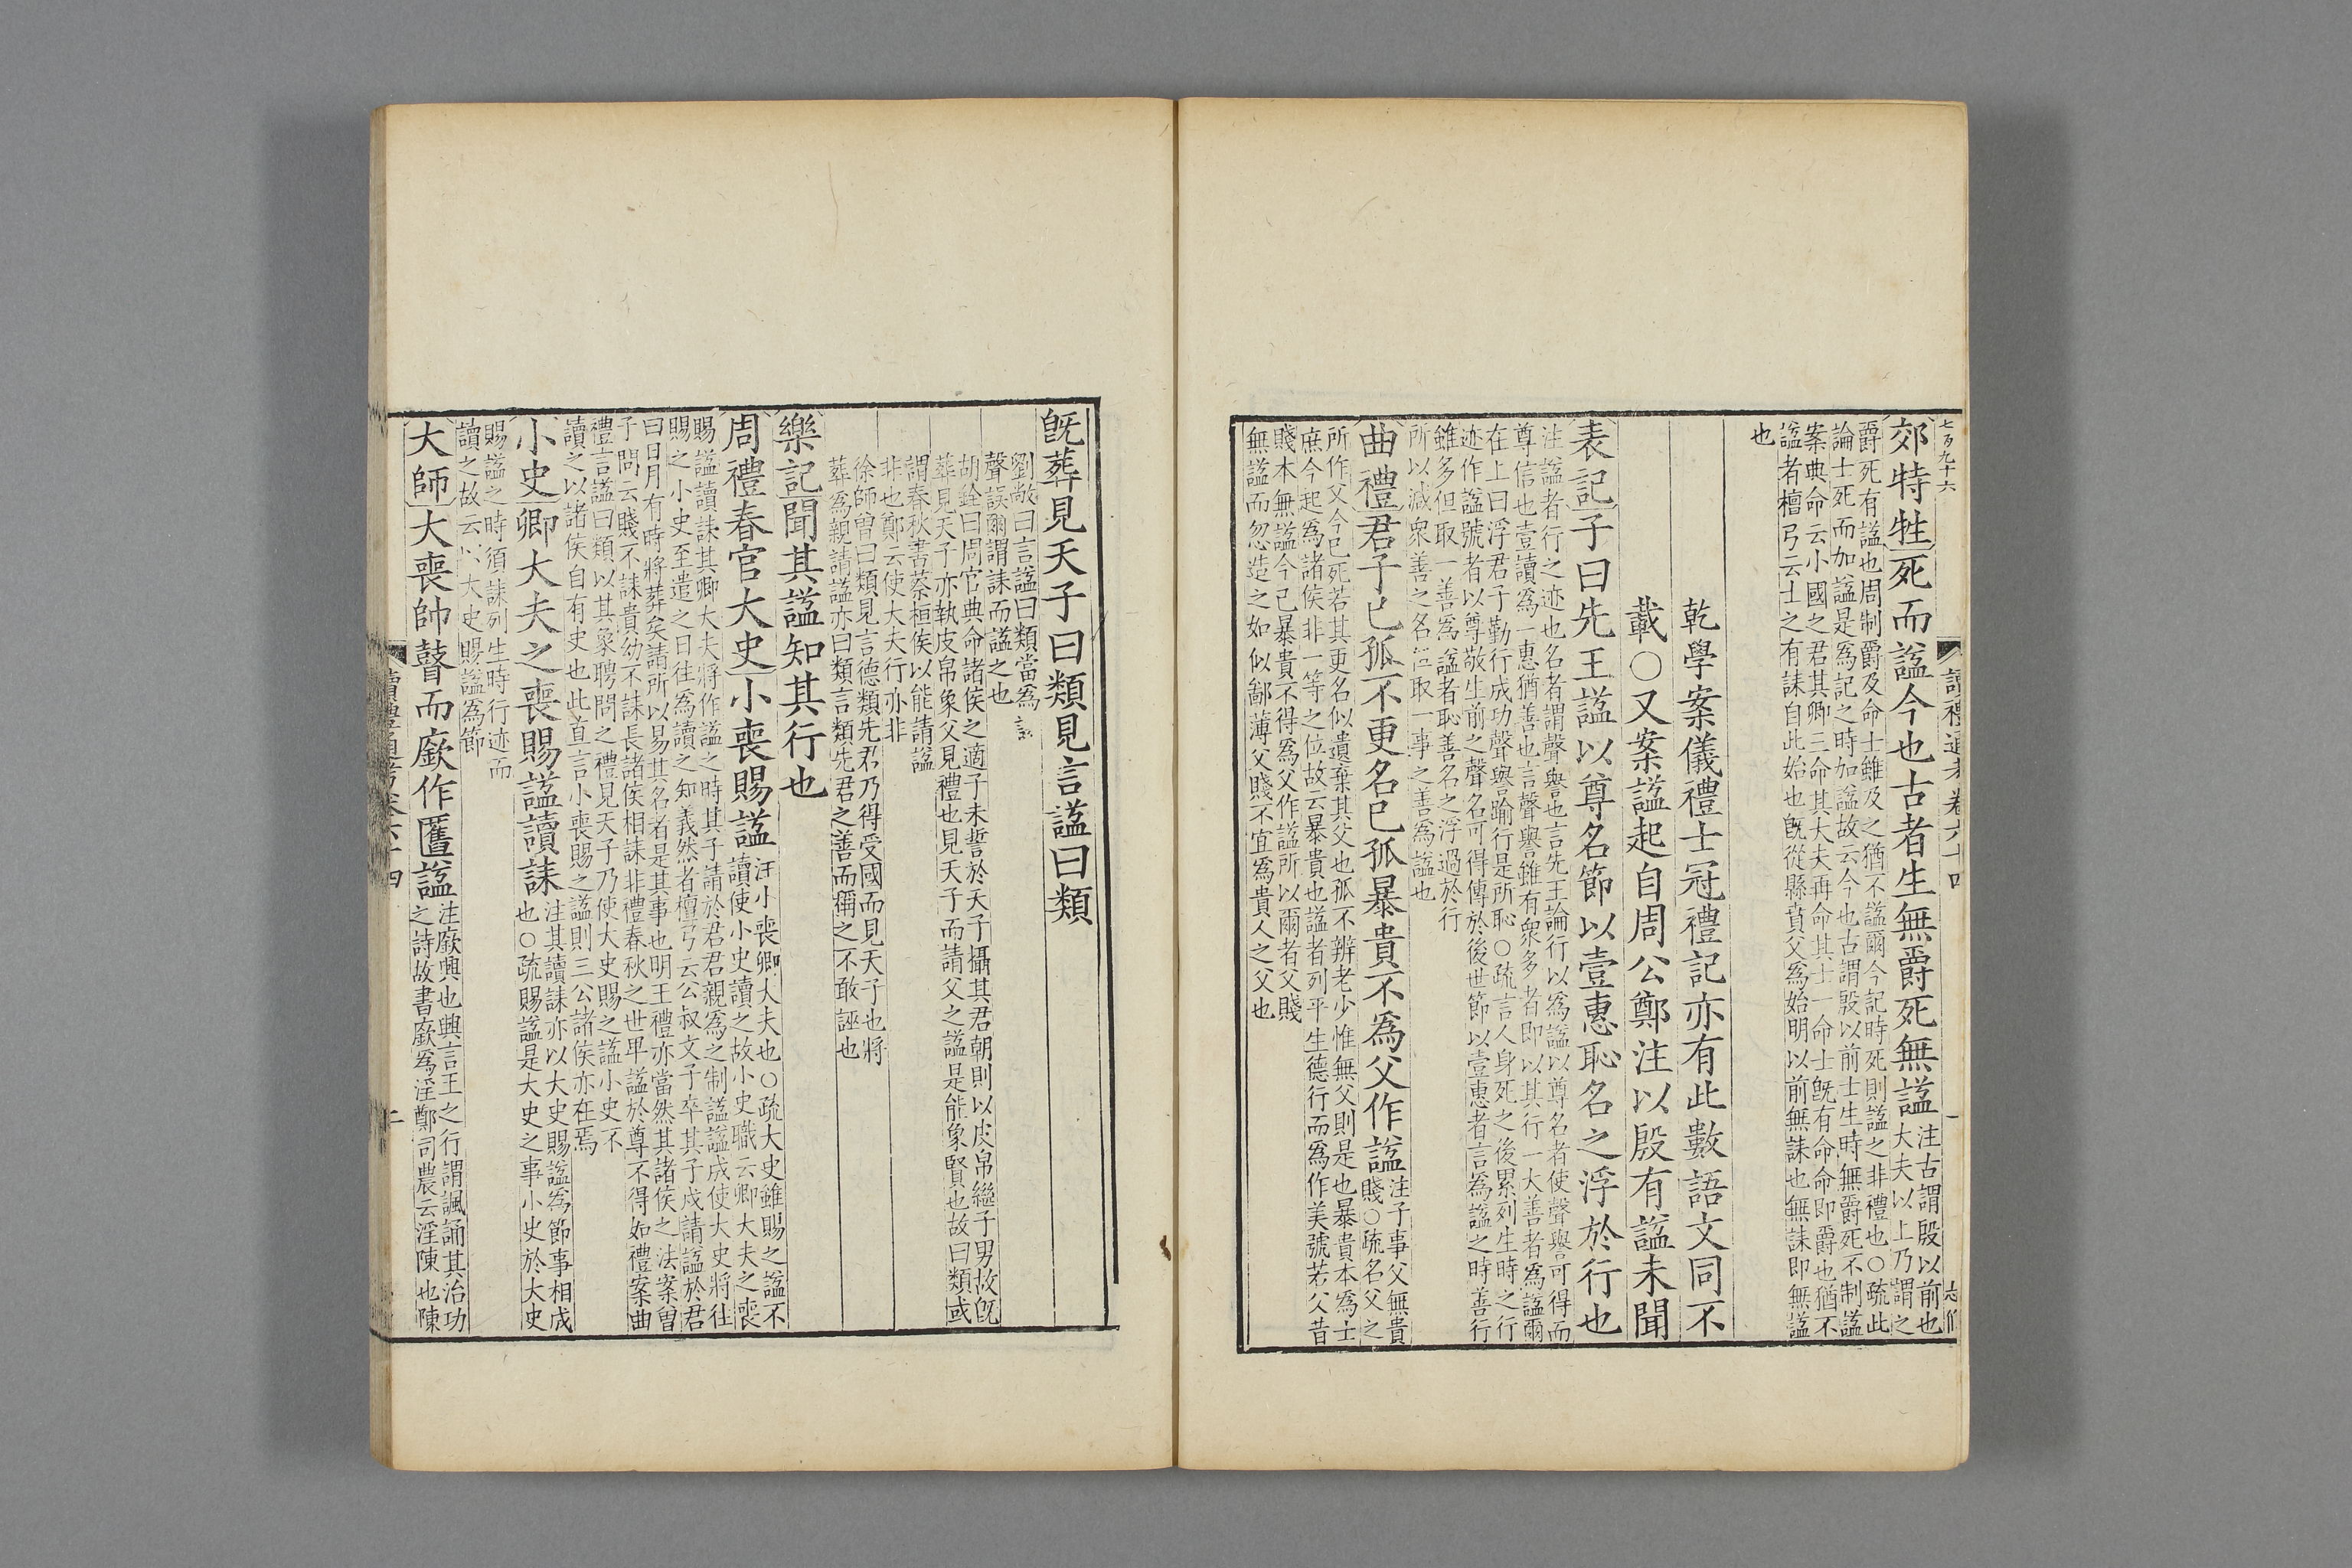 七百九十六
讀禮通考 卷六十四
一
郊特牲死而諡今也古者生無爵死無諡注古謂殷以前也
大夫以上乃謂之
爵死有諡也周制爵及命士雖及之猶不諡爾今記時死則諡之非禮也○疏此
論士死而加諡是爲記之時加諡故云今也古謂殷以前士生時無爵死不制諡
案典命云小國之君其卿三命其大夫再命其士一命士旣有命命卽爵也猶不
諡者檀弓云士之有誄自此始也旣從縣賁父爲始明以前無誄也無誄卽無諡
也
乾學案儀禮士冠禮記亦有此數語文同不
載○又案諡起自周公鄭注以殷有諡未聞
表記子曰先王諡以尊名節以壹惠恥名之浮於行也
注諡者行之迹也名者謂聲譽也言先王論行以爲諡以尊名者使聲譽可得而
尊信也壹讀爲一惠猶善也言聲譽雖有衆多者卽以其行一大善者爲諡爾
在上曰浮君子勤行成功聲譽踰行是所恥○疏言人身死之後累列生時之行
迹作諡號者以尊敬生前之聲名可得傳於後世節以壹惠者言爲諡之時善行
雖多但取一善爲諡者恥善名之浮過於行
所以減衆善之名但取一事之善爲諡也
曲禮君子已孤不更名已孤暴貴不爲父作諡注子事父無貴
賤○疏名父之
所作父今已死若其更名似遺棄其父也孤不辨老少惟無父則是也暴貴本爲士
庶今起爲諸侯非一等之位故云暴貴也諡者列平生德行而爲作美號若父昔
賤本無諡今己暴貴不得爲父作諡所以爾者父賤
無諡而忽造之如似鄙薄父賤不宜爲貴人之父也
旣葬見天子曰類見言諡曰類
劉敞曰言諡曰類當爲誄
聲誤爾謂誄而諡之也
胡銓曰周官典命諸侯之適子未誓於天子攝其君朝則以皮帛繼子男故旣
葬見天子亦執皮帛象父見禮也見天子而請父之諡是能象賢也故曰類或
謂春秋書蔡桓侯以能請諡
非也鄭云使大夫行亦非
徐師曾曰類見言德類先君乃得受國而見天子也將
葬爲親請諡亦曰類言類先君之善而稱之不敢誣也
樂記聞其諡知其行也
周禮春官大史小喪賜諡注小喪卿大夫也○疏大史雖賜之諡不
讀使小史讀之故小史職云卿大夫之喪
賜諡讀誄其卿大夫將作諡之時其子請於君君親爲之制諡諡成使大史將往
賜之小史至遣之日往爲讀之知義然者檀弓云公叔文子卒其子戍請諡於君
曰日月有時將葬矣請所以易其名者是其事也明王禮亦當然其諸侯之法案曾
子問云賤不誄貴幼不誄長諸侯相誄非禮春秋之世卑諡於尊不得如禮案曲
禮言諡曰類以其象聘問之禮見天子乃使大史賜之諡小史不
讀之以諸侯自有史也此直言小喪賜之諡則三公諸侯亦在焉
小史卿大夫之喪賜諡讀誄注其讀誄亦以大史賜諡爲節事相成
也○疏賜諡是大史之事小史於大史
賜諡之時須誄列生時行迹而
讀之故云以大史賜諡爲節
大師大喪帥瞽而廞作匶諡注廞興也興言王之行謂諷誦其治功
之詩故書廞爲淫鄭司農云淫陳也陳
讀禮通考卷六十四
二